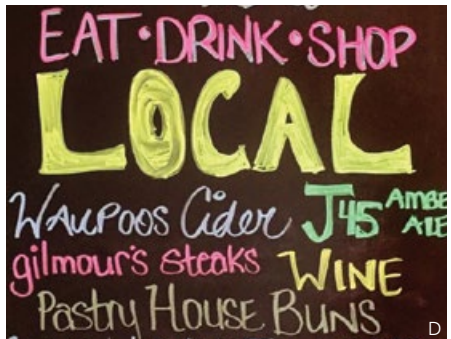 EAT • DRINK • SHOP
LOCAL
WAUPOOS Cider J45 AMBE
ALE
gilmour's steaks WINE
Pastry House Buns
D